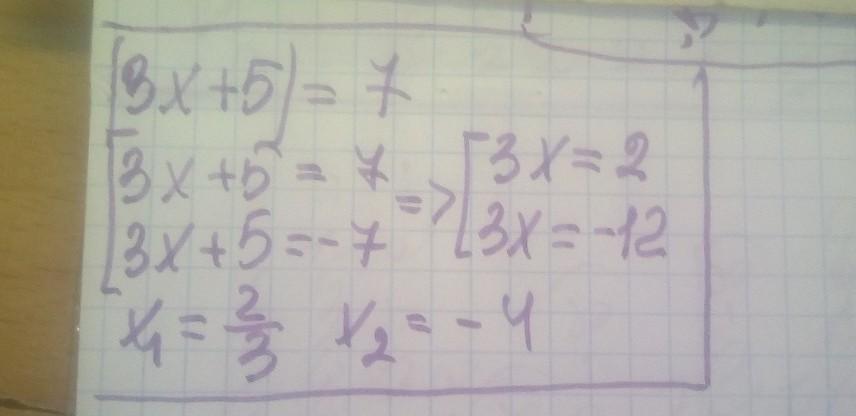 |3x+5| = 7
[3x+5 = 7
3x+5 = -7
=> [3x = 2
3x = -12
x₁ = 2/3 x₂ = -4